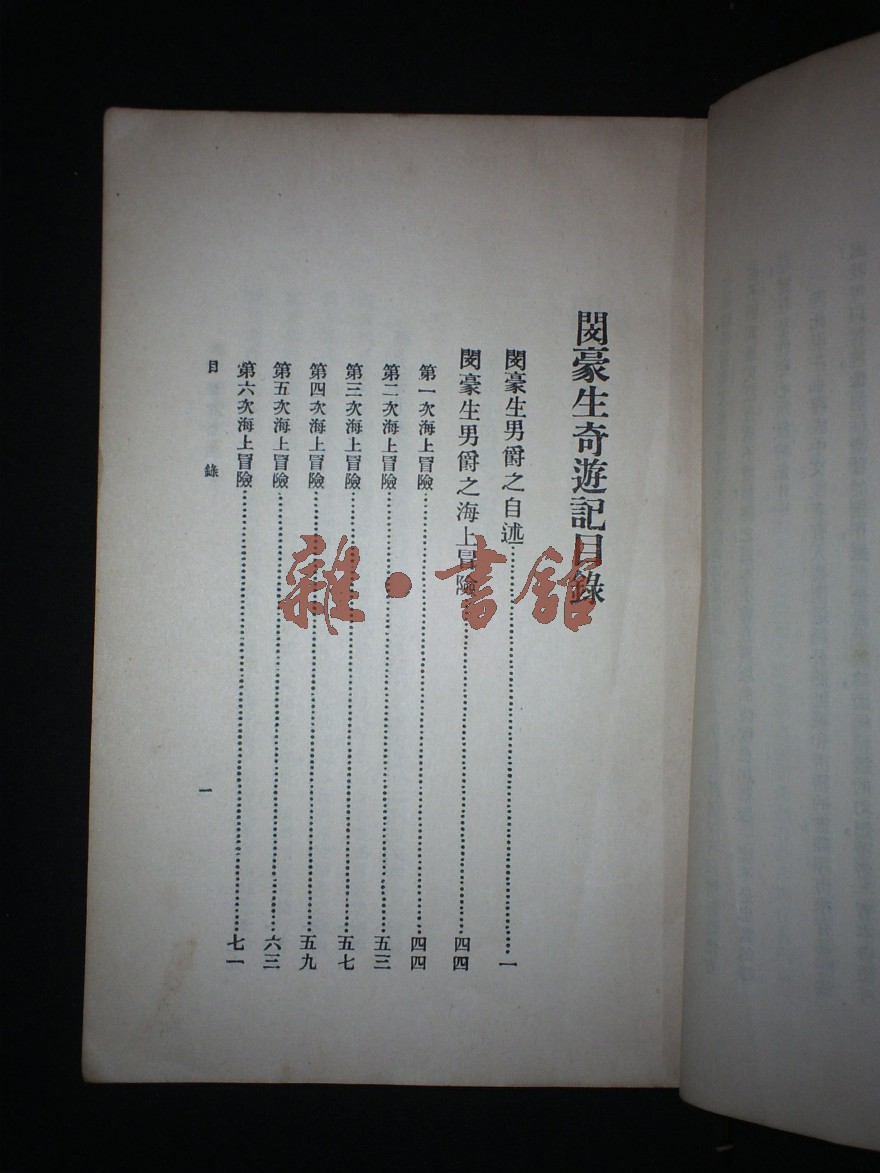 閔豪生奇遊記目錄
閔豪生男爵之自述……一
閔豪生男爵之海上冒險……四四
第一次海上冒險……四四
第二次海上冒險……五三
第三次海上冒險……五七
第四次海上冒險……五九
第五次海上冒險……六三
第六次海上冒險……七一
目錄
一
雜·書館